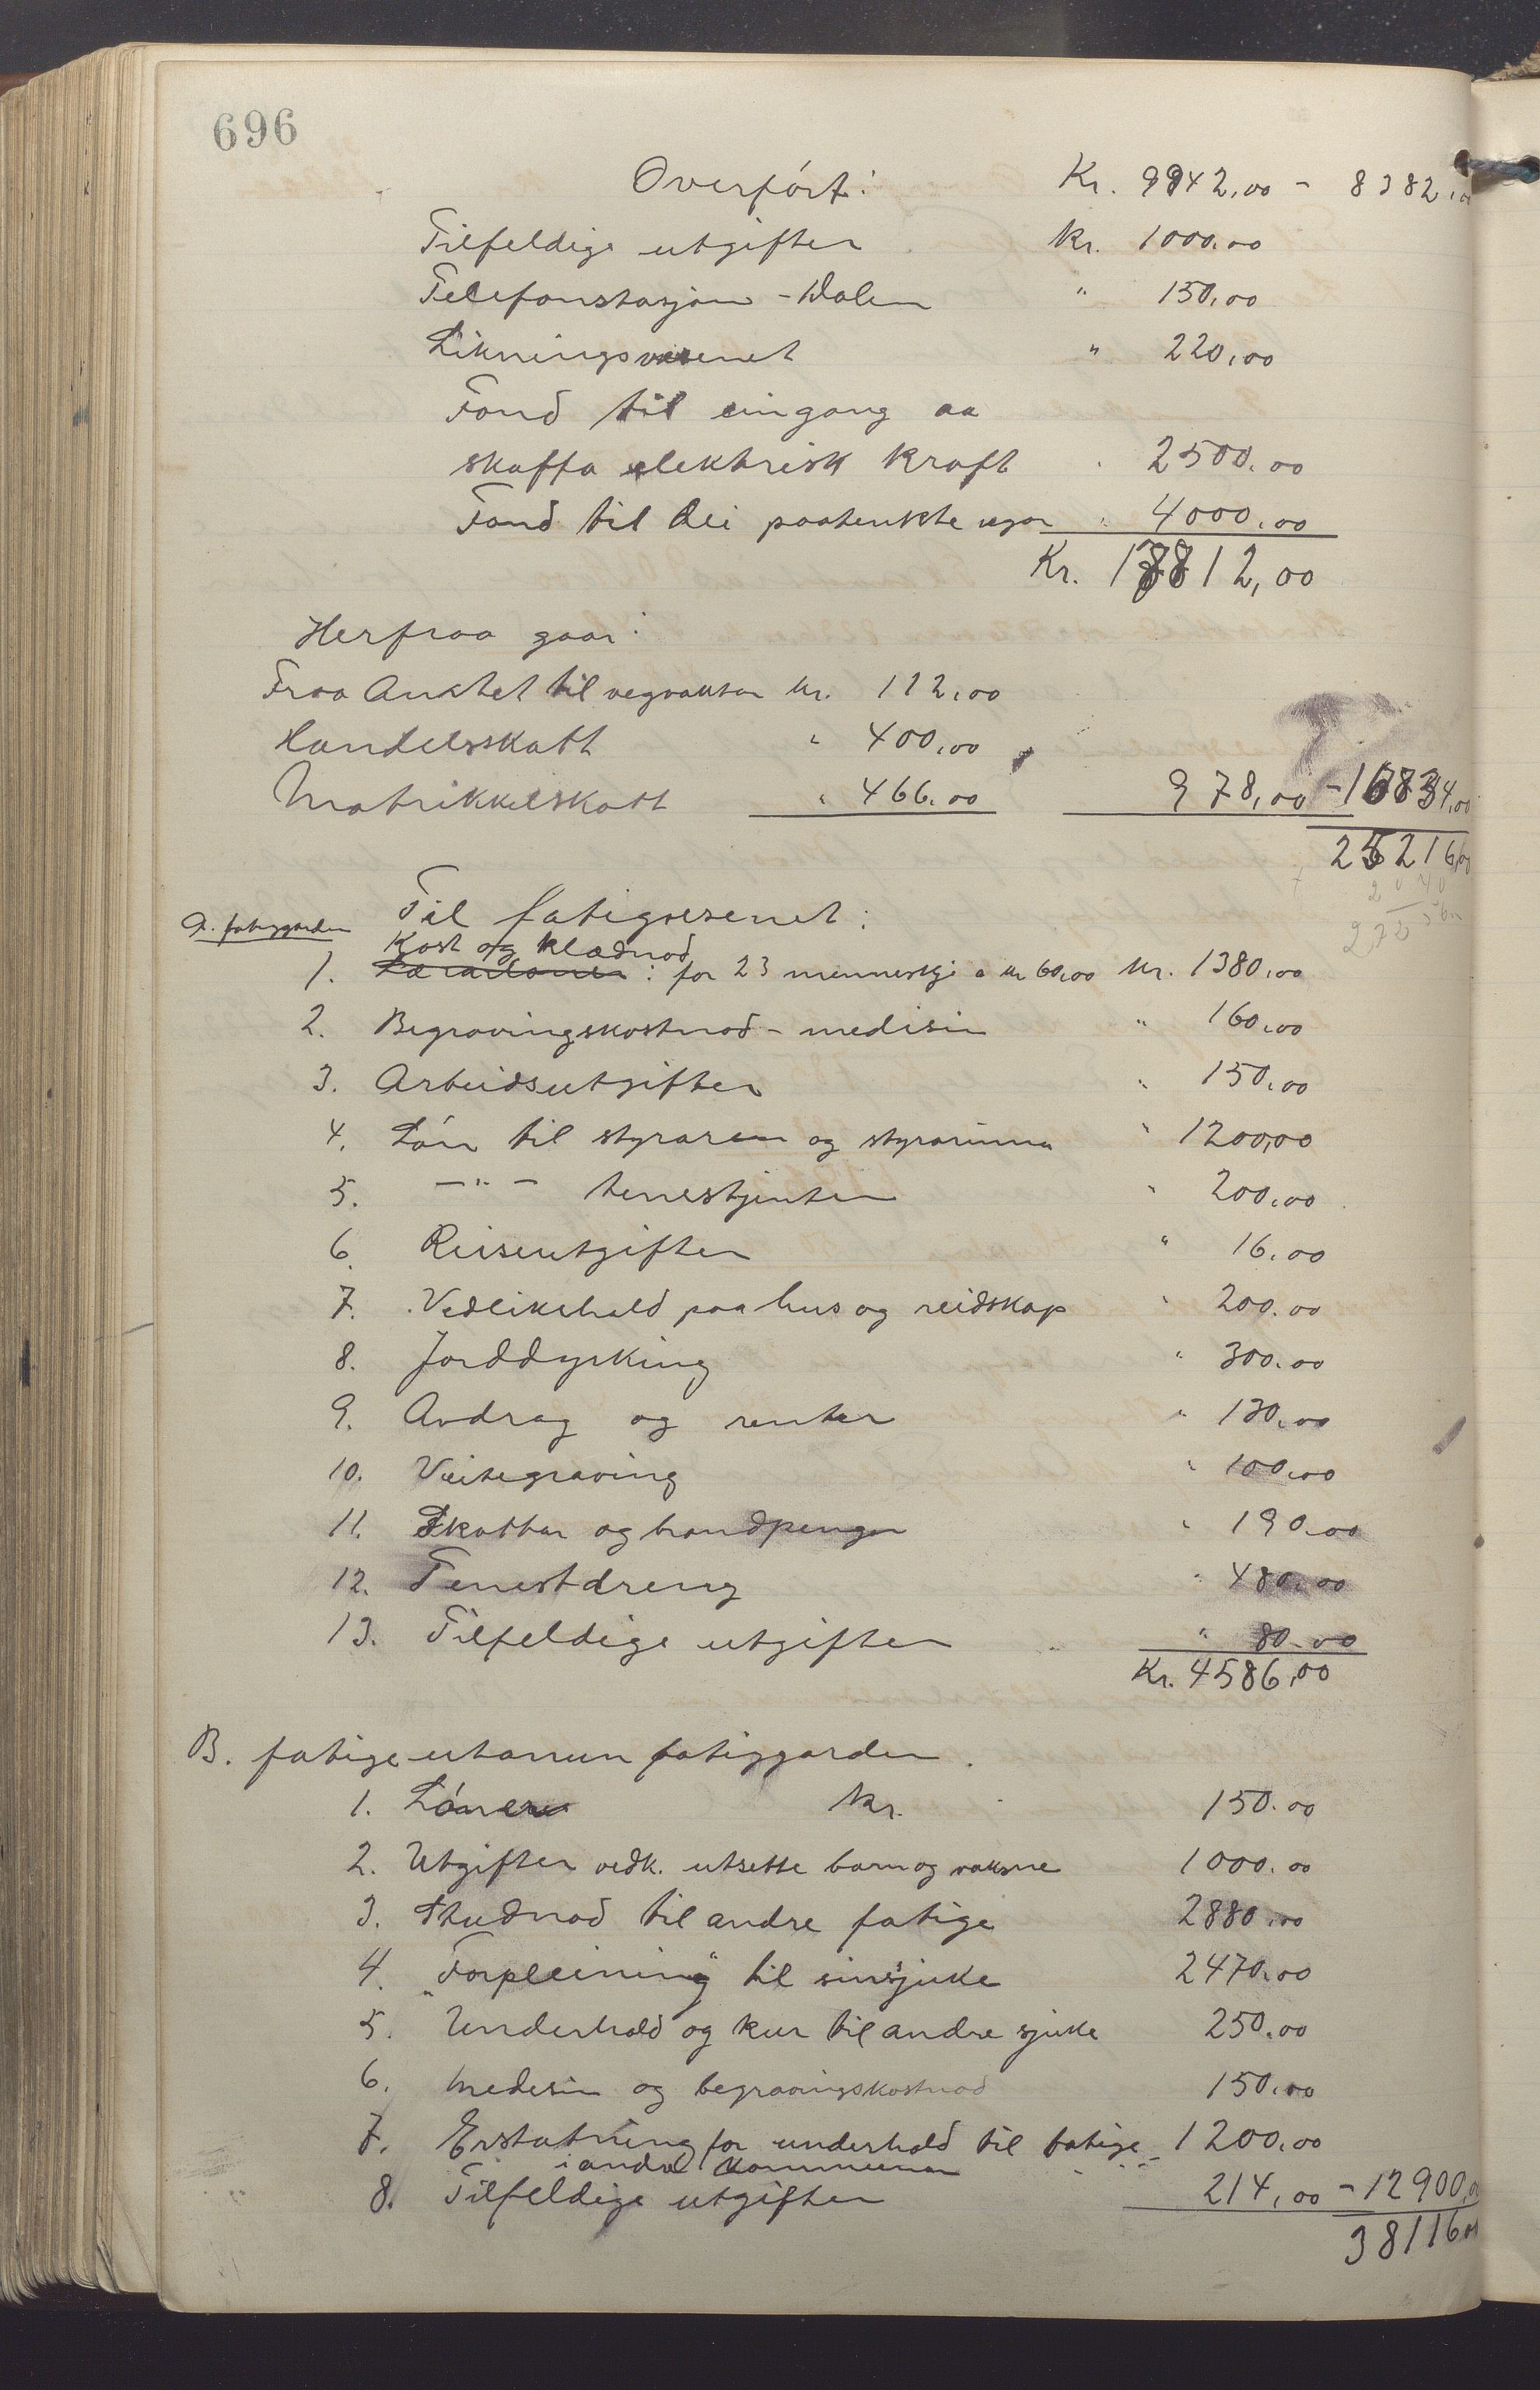 696
Overført: Kr. 9942,00 - 8382,00
Tilfeldige utgifter Kr. 1000.00
Telefonstasjon - Dalen " 150,00
Likningsvesenet " 220,00
Fond til eingang aa
skaffa elektrisk kraft " 2500.00
Fond til dei paatenkte vegar " 4000.00
Kr. 17812,00
Herfraa gaar:
Fraa Amtet til vegvaktar kr. 112,00
Handelsskatt " 400,00
Matrikkelskatt " 466.00 978,00 - 16834,00
25216,00
Til fatigvesenet:
A. fatiggarden
Kost og klædnad
1. : for 23 menneskje a kr 60,00 kr. 1380,00
2. Begravingskostnad - medisin " 160,00
3. Arbeidsutgifter " 150,00
4. Løn til styraren og styrarinna " 1200,00
5. - " - tenestjenter " 200,00
6. Reiseutgifter " 16.00
7. Vedlikehald paa hus og reidskap " 200.00
8. Jorddyrking " 300.00
9. Avdrag og renter " 130.00
10. Veitegraving " 100,00
11. Skattar og brandpengar " 190.00
12. Tenestdreng " 480,00
13. Tilfeldige utgifter " 80.00
Kr. 4586,00
B. fatige utanum fatiggarden.
1. Løner kr. 150.00
2. Utgifter vedk. utsette barn og vaksne 1000.00
3. Studnad til andre fatige 2880,00
4. "Forpleining" til sinsjuke 2470.00
5. Underhald og kur til andre sjuke 250.00
6. Medesin og begravingskostnad 150.00
7. Erstatning for underhald til fatige 1200,00
i andre kommuner
8. Tilfeldige utgifter 214,00 - 12900,00
38116,00